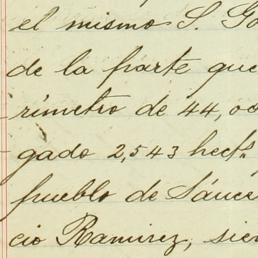 el mismo S. Go
de la parte que
rímetro de 44,00
gado 2,543 hects.
pueblo de Sauce
cio Ramirez, sien